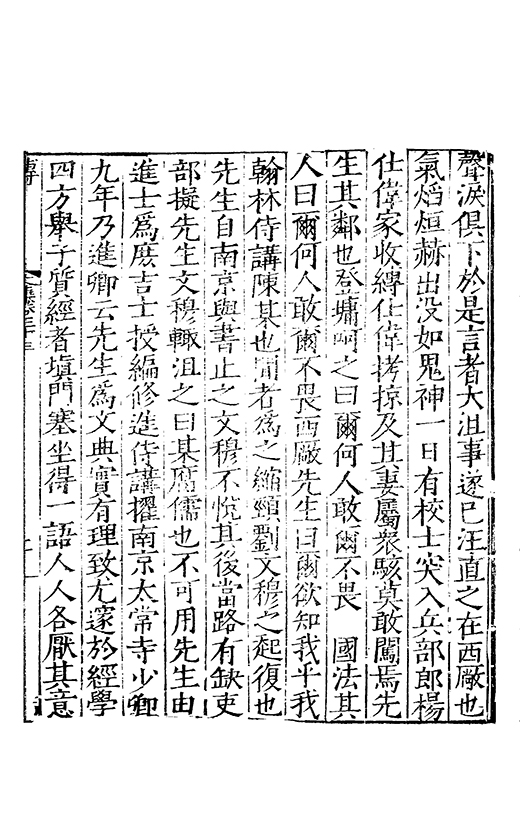 聲淚俱下於是言者大沮事遂已汪直之在西厰也
氣焰烜赫出没如鬼神一日有校士突入兵部郎楊
仕偉家收縛仕偉拷掠及其妻屬衆駭莫敢闖焉先
生其鄰也登墉呵之曰爾何人敢爾不畏 國法其
人曰爾何人敢爾不畏西厰先生曰爾欲知我乎我
翰林侍講陳某也聞者爲之縮頸劉文穆之起復也
先生自南京與書止之文穆不悅其後當路有缺吏
部擬先生文穆輒沮之曰某腐儒也不可用先生由
進士爲庶吉士授編修進侍講擢南京太常寺少卿
九年乃進卿云先生爲文典實有理致尤邃於經學
四方舉子質經者塡門塞坐得一語人人各厭其意
傳